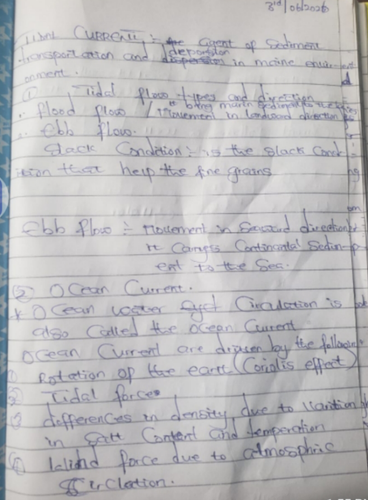 3rd/06/2026
CURRENT :- the agent of Sediment
transportation and deposition in marine environ
onment.
① Tidal flow types and direction
. flood flow / Movement in landward direction
. Ebb flow.
Slack Condition :- is the slack Cond
ition that help the fine greans
Ebb flow :- Movement in Seaward direction
it Carries Continental Sedim
ent to the Sea.
② Ocean Current.
* Ocean water Circulation is
also Called the ocean Current
Ocean Current are driven by the following
① Rotation of the earth (Coriolis effect)
② Tidal forces
③ differences in density due to Variation
in salt Content and temperation
④ Wind force due to atmosphric
circlation.